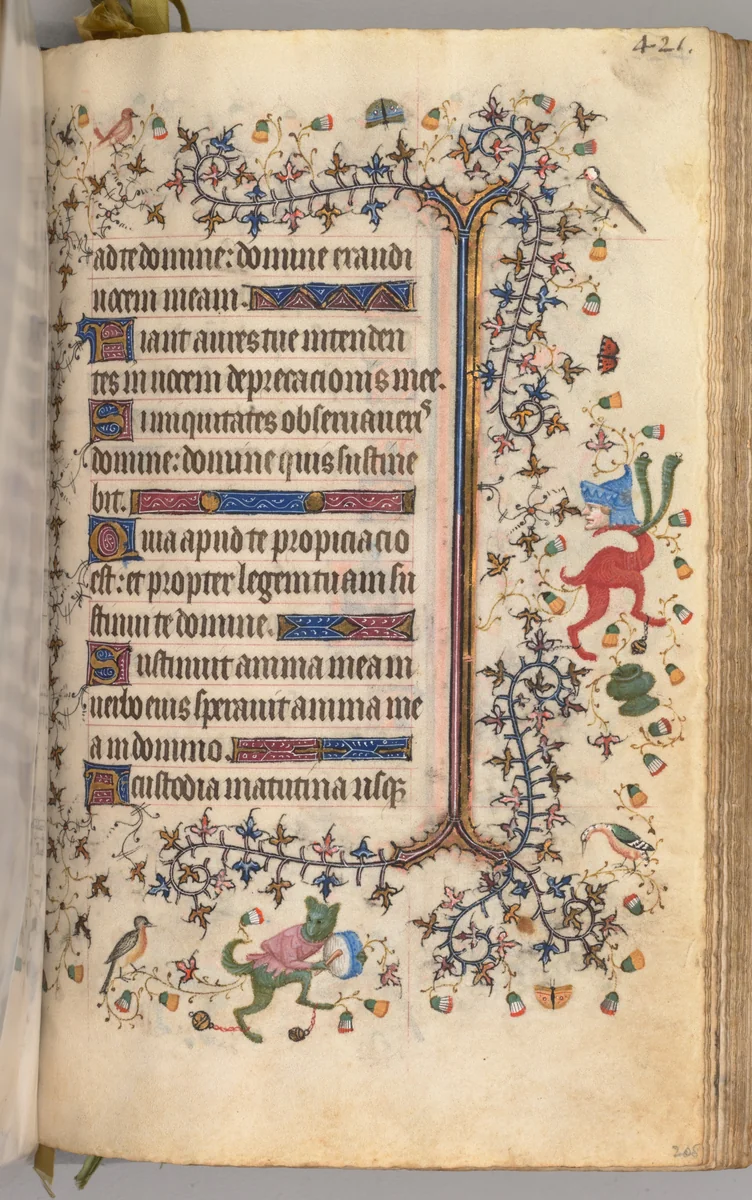 421.
ad te domine: domine exaudi
uocem meam.
Fiant aures tue intenden
tes in uocem deprecacionis mee.
Si iniquitates obseruaueris
domine: domine quis sustine
bit.
Quia apud te propiciacio
est: et propter legem tuam su
stinui te domine.
Sustinuit anima mea in
uerbo eius sperauit anima me
a in domino.
A custodia matutina usq